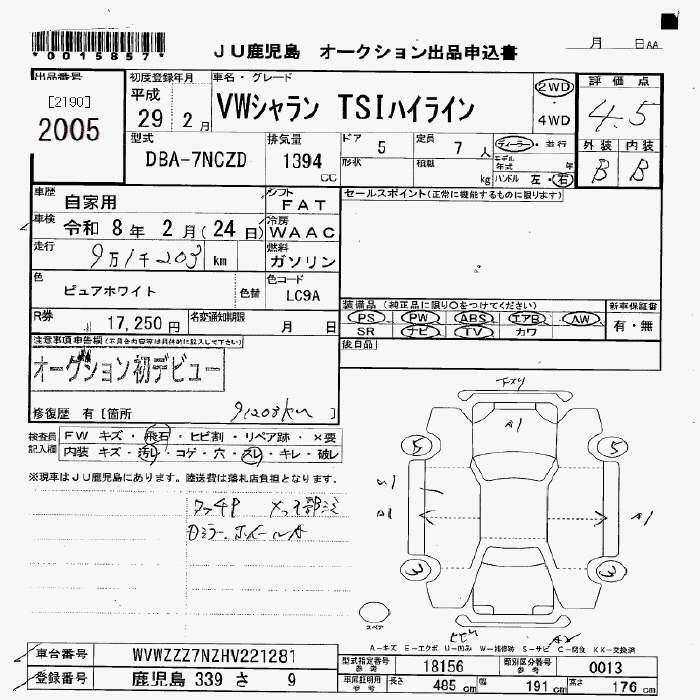 *0015857*
JU鹿児島 オークション出品申込書
月 日 AA
出品番号
[2190]
2005
初度登録年月
平成
29 2月
車名・グレード
VWシャラン TSIハイライン
2WD
4WD
評価点
4.5
外装 内装
B B
型式
DBA-7NCZD
排気量
1394 CC
ドア 5
形状
定員 7人
积載 kg
ディーラー・並行
モデル年式 年
ハンドル 左・右
車歴 自家用
シフト FAT
車検 令和 8年 2月(24日)
冷房 WAAC
走行 9万1千203 km
燃料 ガソリン
色 ピュアホワイト 色替
色コード LC9A
R券 17,250円
名変通知期限 月 日
セールスポイント(正常に機能するものに限ります)
装備品(純正品に限り○をつけてください)
PS PW ABS エアB AW
SR ナビ TV カワ
新車保証書
有・無
後日品
注意事項申告欄(不具合内容等は具体的に記入して下さい)
オークション初デビュー
修復歴 有[箇所 91203km
検査員記入欄
FW キズ・飛石・ヒビ割・リペア跡・×要
内装 キズ・汚レ・コゲ・穴・スレ・キレ・破レ
※現車はJU鹿児島にあります。陸送費は落札店負担となります。
A1
5 5
A1
3 3
スペア
A-キズ E-エクボ U-凹み W-補修跡 S-サビ C-腐食 XX-交換済
車台番号 WVWZZZ7NZHV221281
登録番号 鹿児島 339 さ 9
型式指定番号 参考 18156
類別区分番号 参考 0013
車庫証明用 参考 長さ 485 cm 幅 191 cm 高さ 176 cm